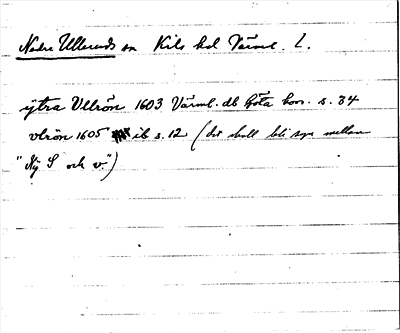 Nedre Ulleruds sn Kils hd Värml. L.
ÿtra Vllrön 1603 Värml. db Göta kvv. s. 34
vlrön 1605 ib s. 12 (det skall bli syn mellan
"Nÿ S och v.")